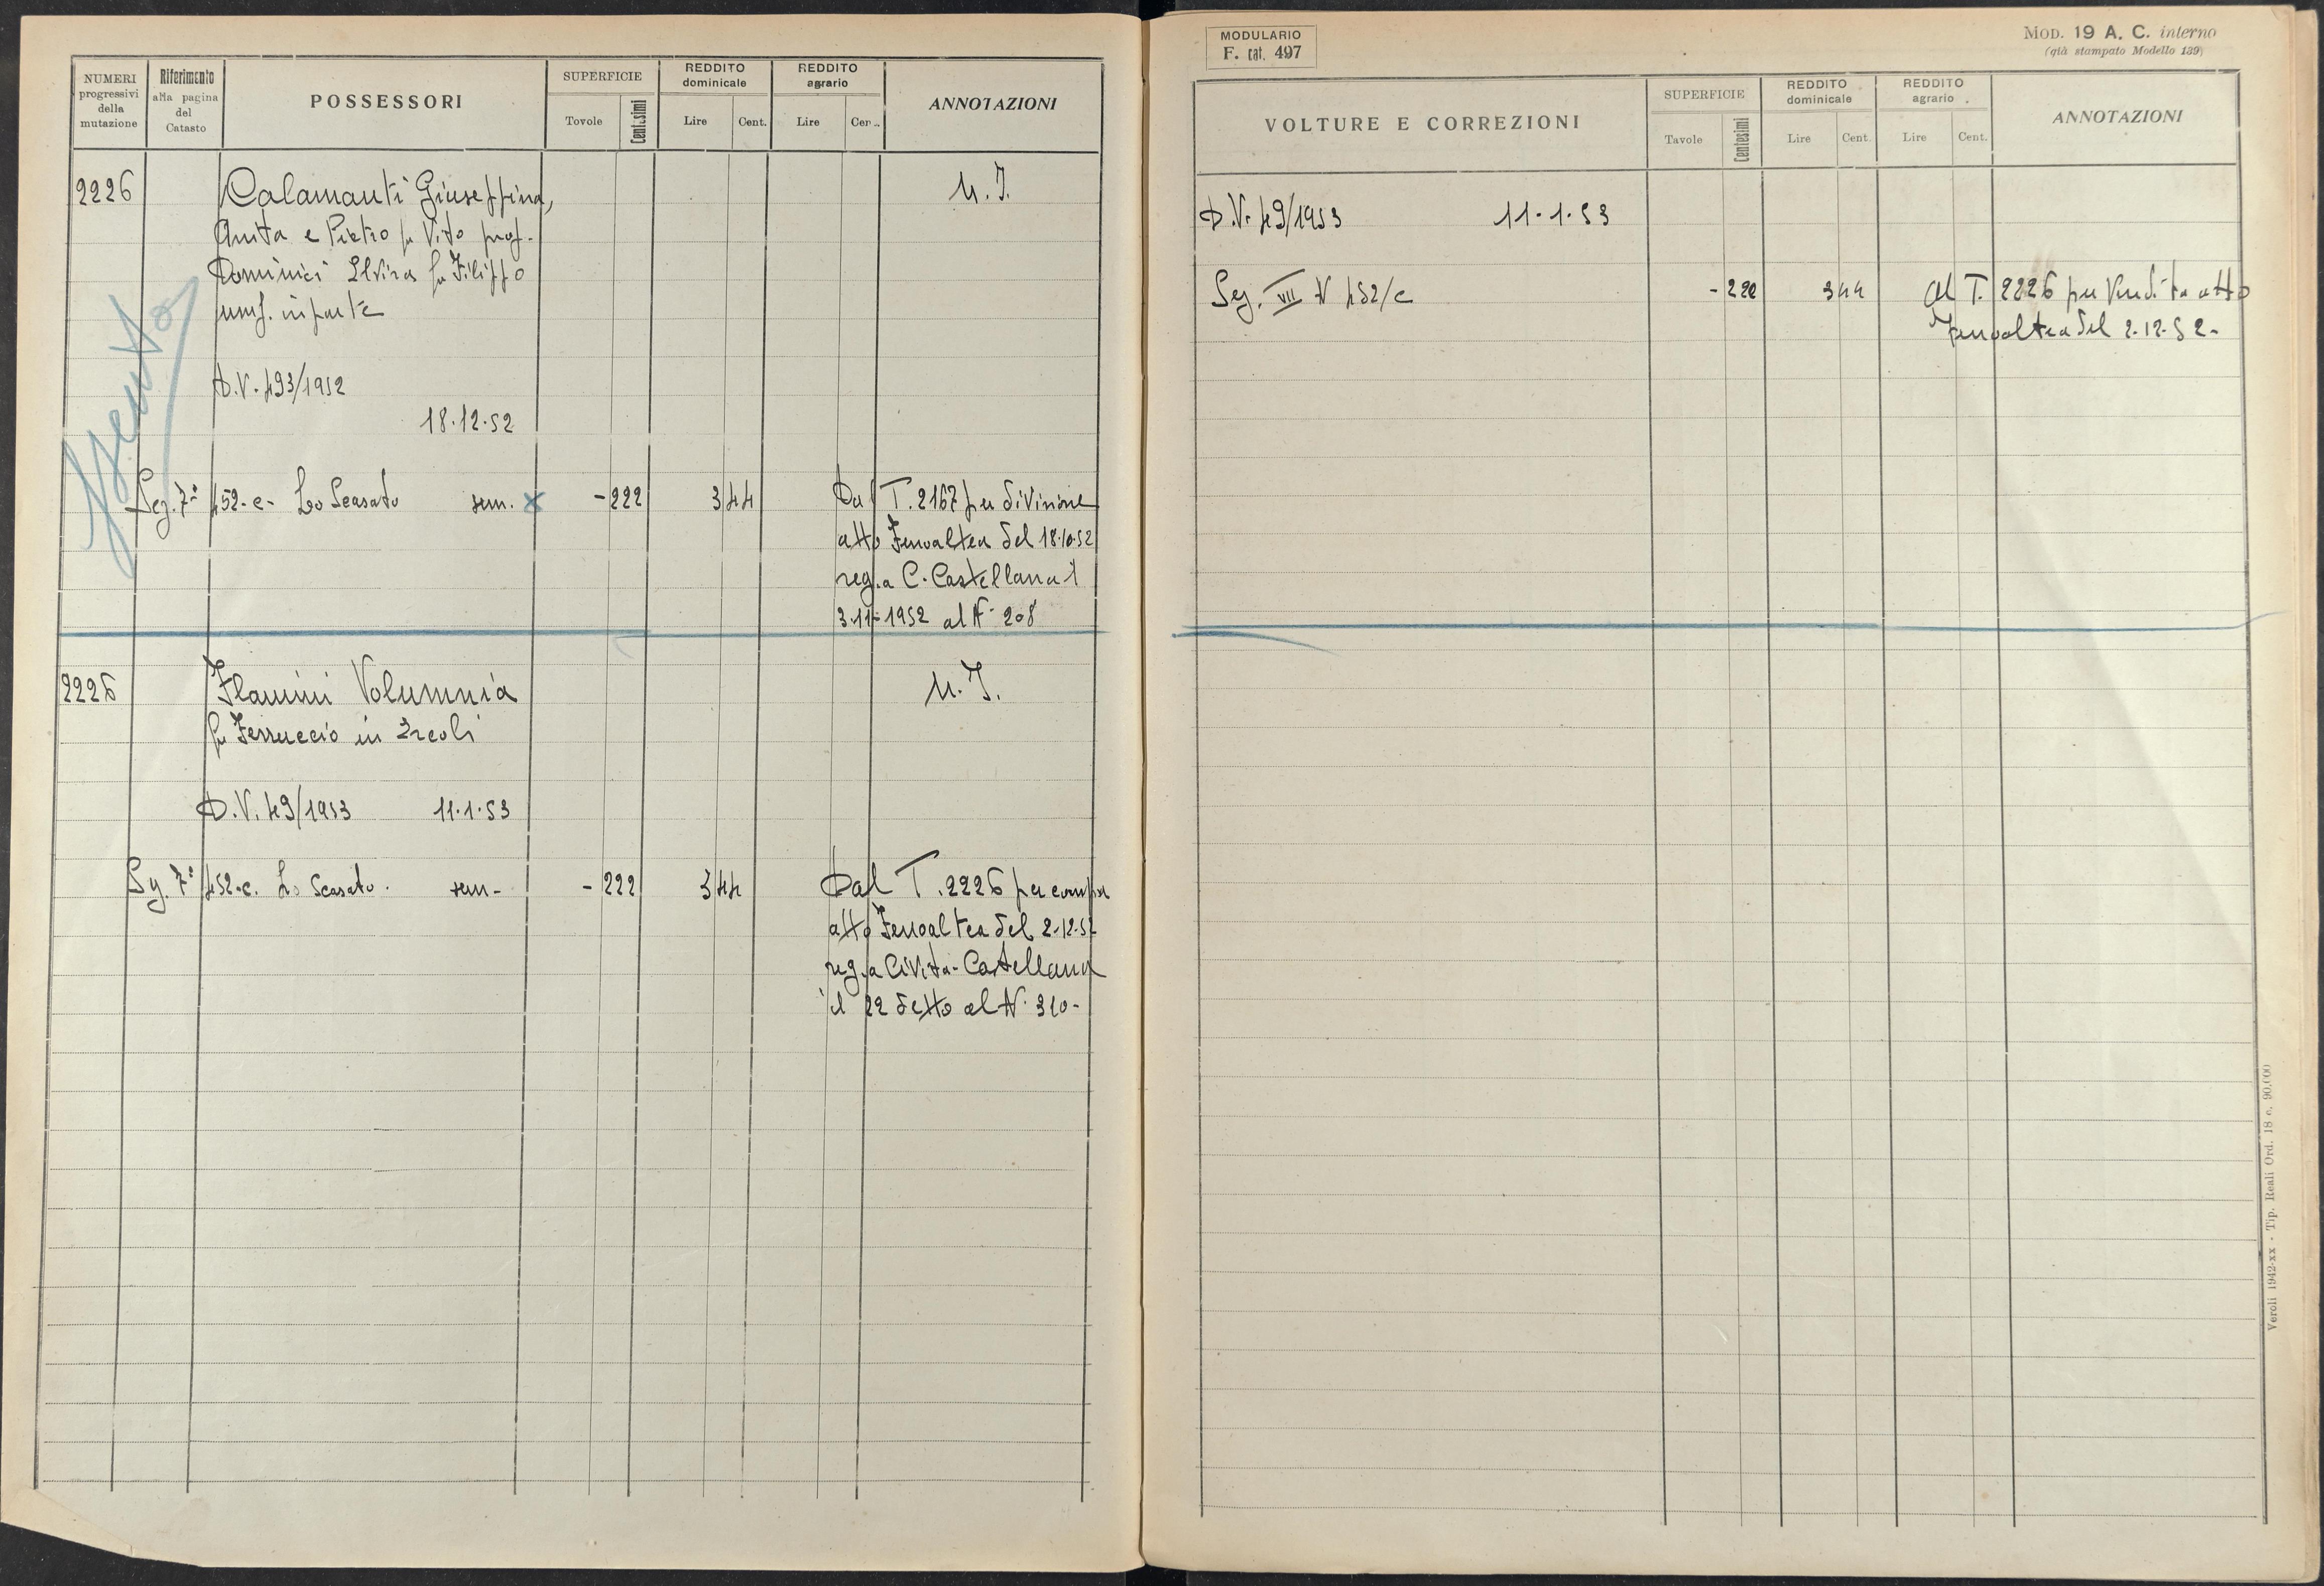 NUMERI progressivi della mutazione
Riferimento alla pagina del Catasto
POSSESSORI
SUPERFICIE
Tavole
Centesimi
REDDITO dominicale
Lire
Cent.
REDDITO agrario
Lire
Cen..
ANNOTAZIONI
2226
Calamanti Giuseppina,
M.I.
Anita e Pietro fu Vito prop.
Dominici Elvira fu Filippo
usuf. in parte
Spento
D.V. 493/1952
18.12.52
Sez. 7ª 452-c- Lo Scasato sem. x -222 344 Dal T. 2167 per divisione
atto Ferroaltea del 18.10.52
reg. a C. Castellana il
3-11-1952 al N. 208
2226
Flamini Volumnia
M.I.
fu Ferruccio in Ercoli
D.V. 49/1953 11.1.53
Sez. 7ª 452-c. Lo Scasato. sem- -222 344 Dal T. 2226 per compra
atto Ferroaltea del 2-12-52
reg. a Civita-Castellana
il 22 detto al N. 310-
MODULARIO
F. cat. 497
MOD. 19 A. C. interno
(già stampato Modello 139)
VOLTURE E CORREZIONI
SUPERFICIE
Tavole
Centesimi
REDDITO dominicale
Lire
Cent.
REDDITO agrario
Lire
Cent.
ANNOTAZIONI
D.V. 49/1953 11.1.53
Sez. VII N 452/c -222 344 Al T. 2226 per vendita atto
Ferroaltea del 2-12-52-
Veroli 1942-xx - Tip. Reali Ord. 18 c. 90.000